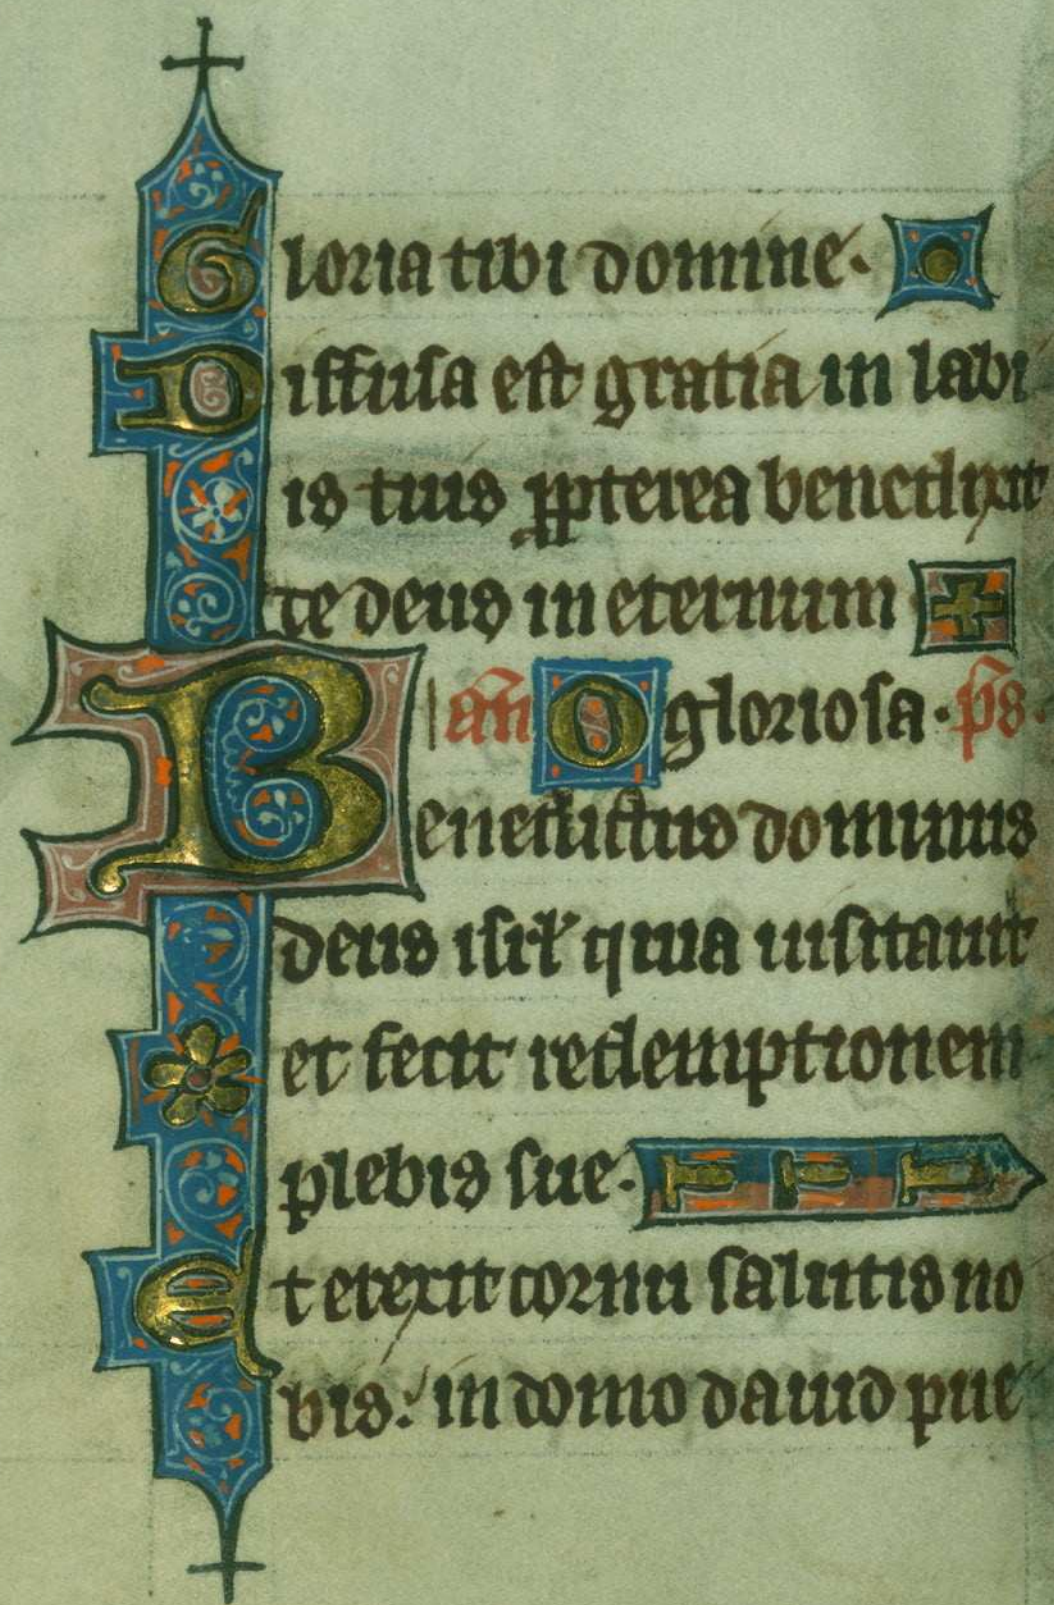 Gloria tibi domine.
Diffusa est gratia in labi
is tuis ꝓpterea benedixit
te deus in eternum
an̄ O gloriosa. ps̄.
Benedictus dominus
deus isrl̄ quia uisitauit
et fecit redemptionem
plebis sue.
Et erexit cornu salutis no
bis: in domo dauid pue